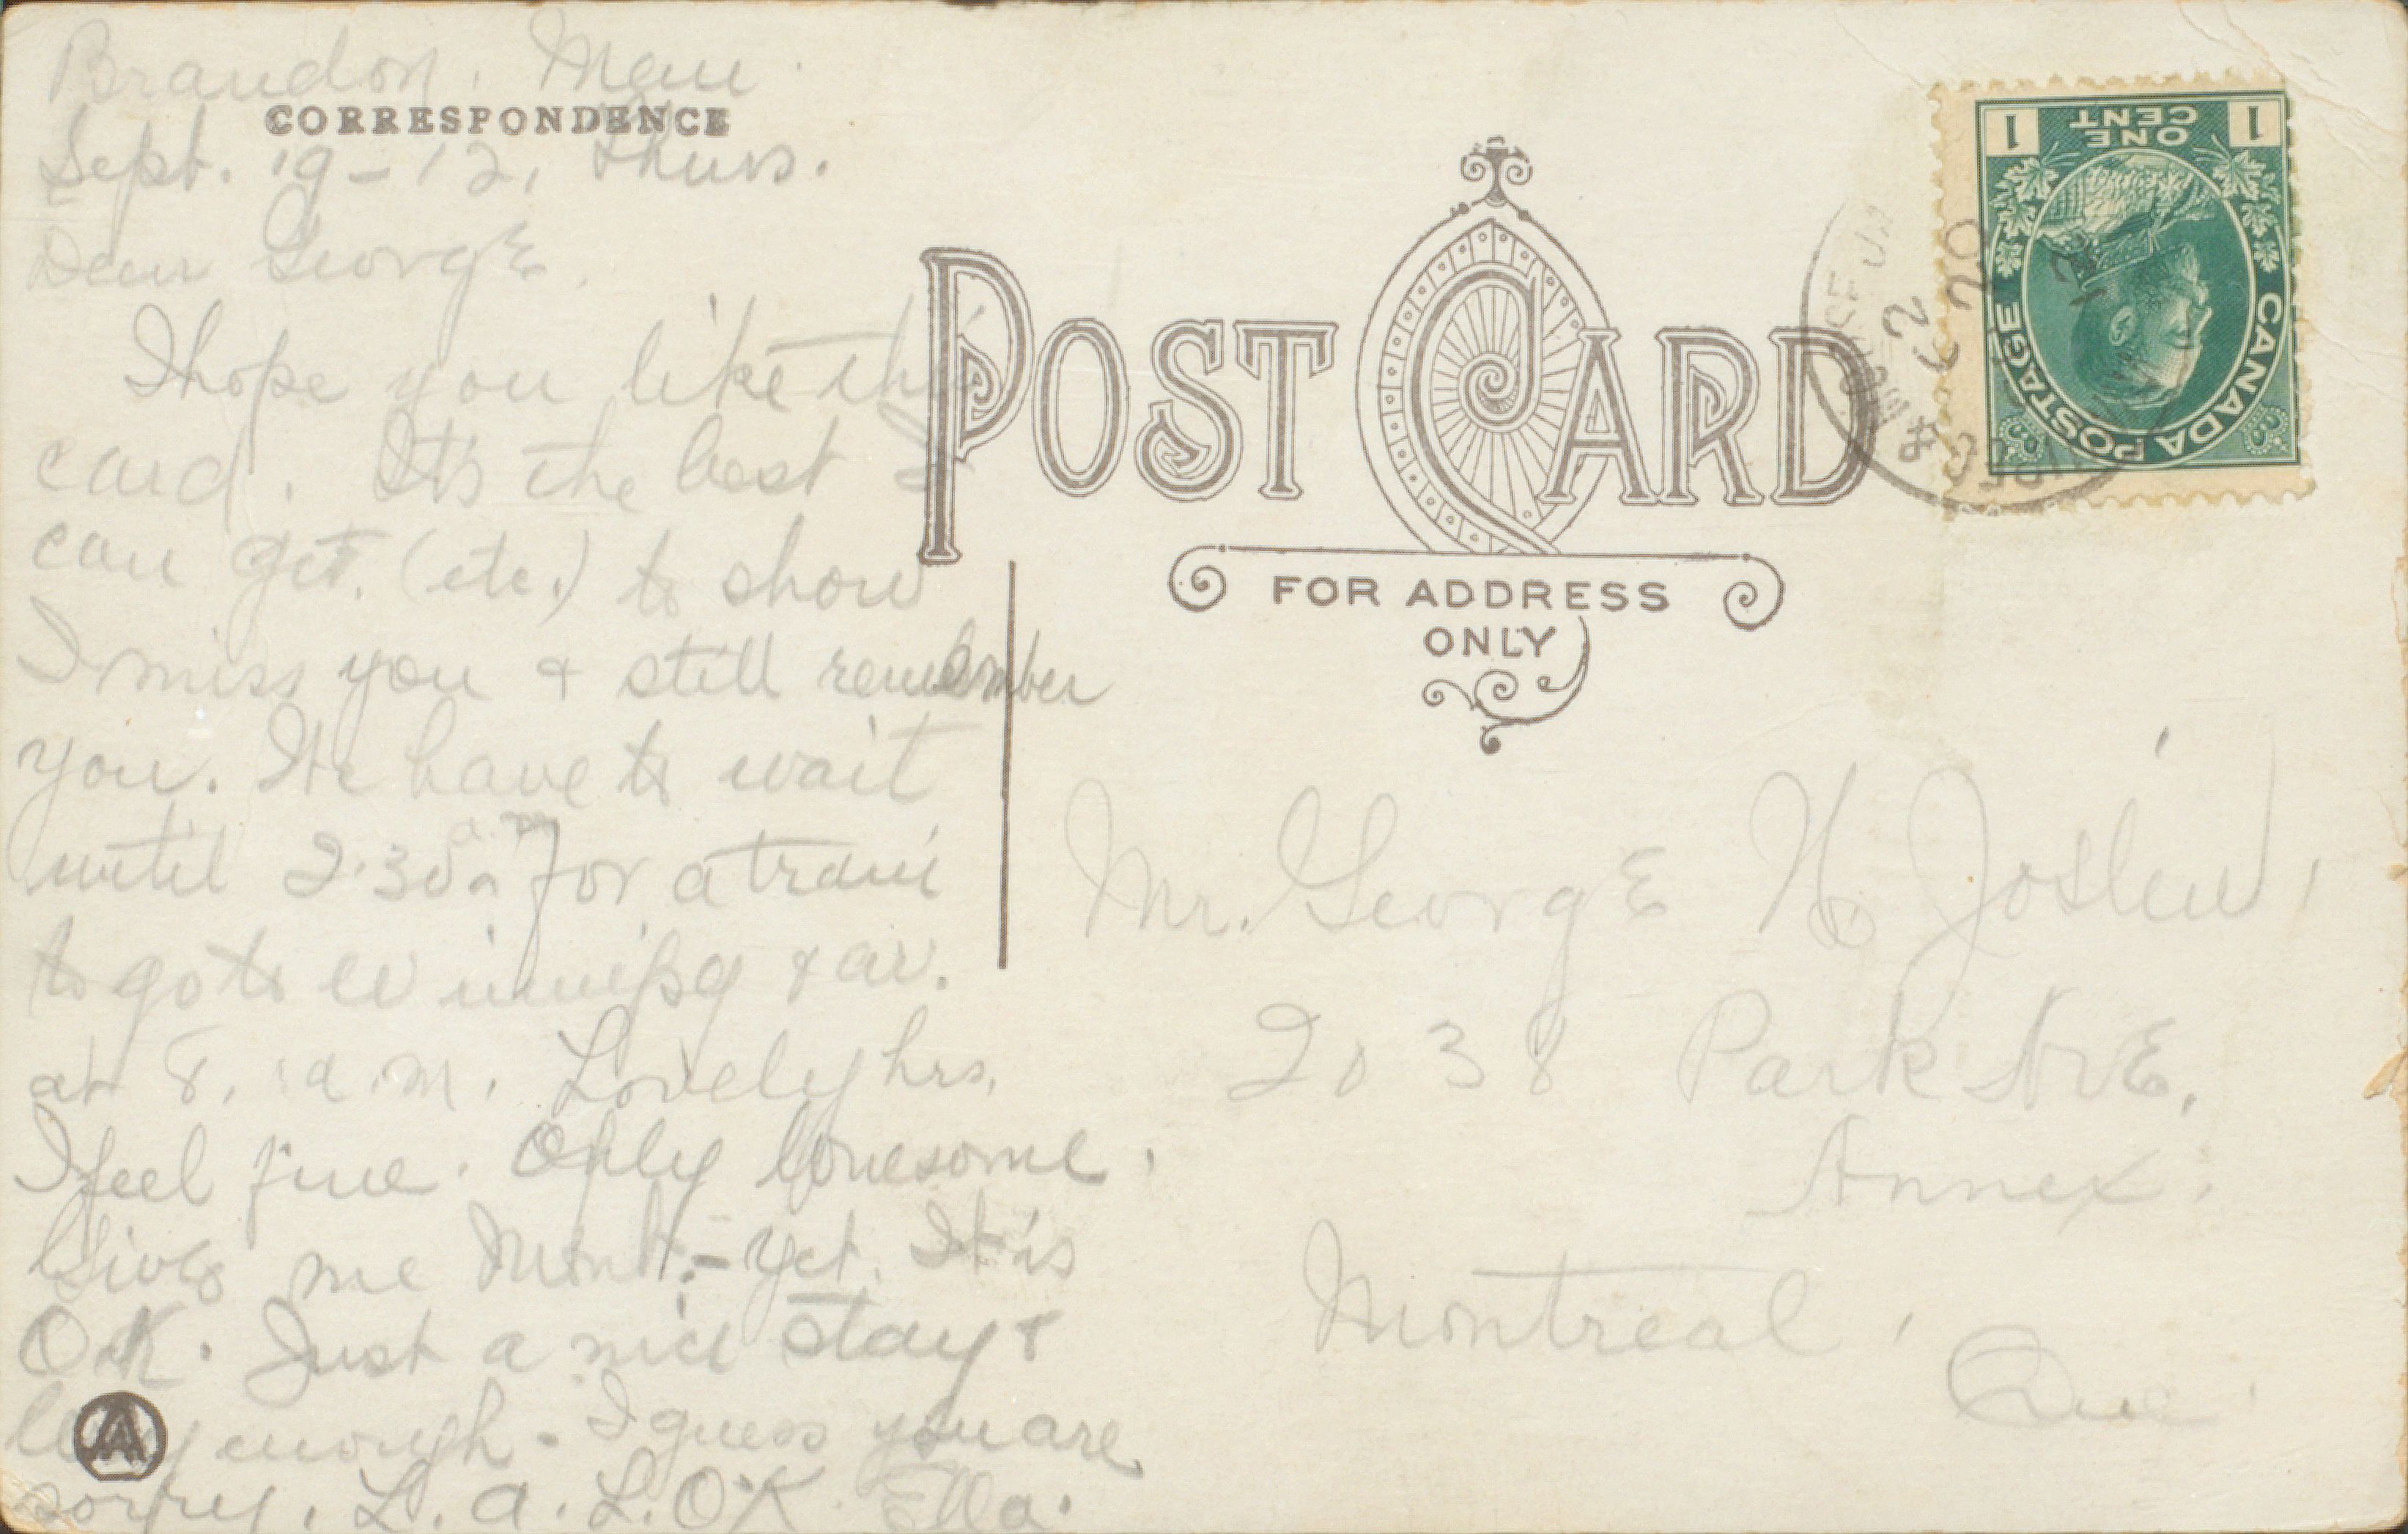 Brandon. Man.
CORRESPONDENCE
Sept. 19-12, Thurs.
Dear George.
I hope you like this
card. It's the best I
can get. (etc.) to show
I miss you & still remember
you. We have to wait
until 2.30 a.m. for a train
to go to Winnipeg & ar.
at 8. a.m. Lovely hrs.
I feel fine. Only lonesome.
Gives me Mont. - yet. It is
O.K. Just a nice stay &
long enough. I guess you are
sorry. L. a. L. O.K. Ella.
POST CARD
FOR ADDRESS
ONLY
ONE
CENT
1
1
CANADA POSTAGE
MOOSE JA
20
12
Mr. George H. Joslin,
2038 Park Ave.
Annex.
Montreal,
Que.